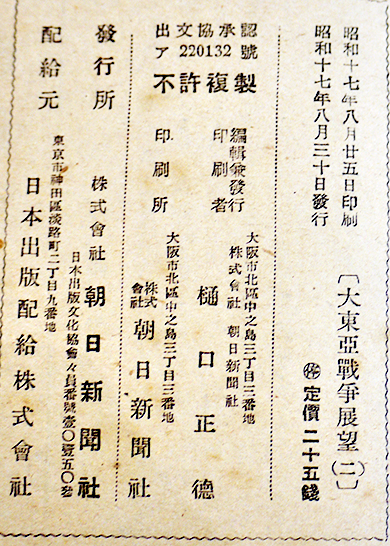 昭和十七年八月廿五日印刷
昭和十七年八月三十日發行
〔大東亞戰爭展望(二)〕
㊞定價二十五錢
出文協承認
ア220132號
不許複製
編輯兼發行
印刷者
大阪市北區中之島三丁目三番地
株式會社 朝日新聞社
樋口正德
印刷所
大阪市北區中之島三丁目三番地
株式會社 朝日新聞社
發行所
株式會社 朝日新聞社
日本出版文化協會々員番號壹〇壹五〇番
配給元
東京市神田區淡路町二丁目九番地
日本出版配給株式會社